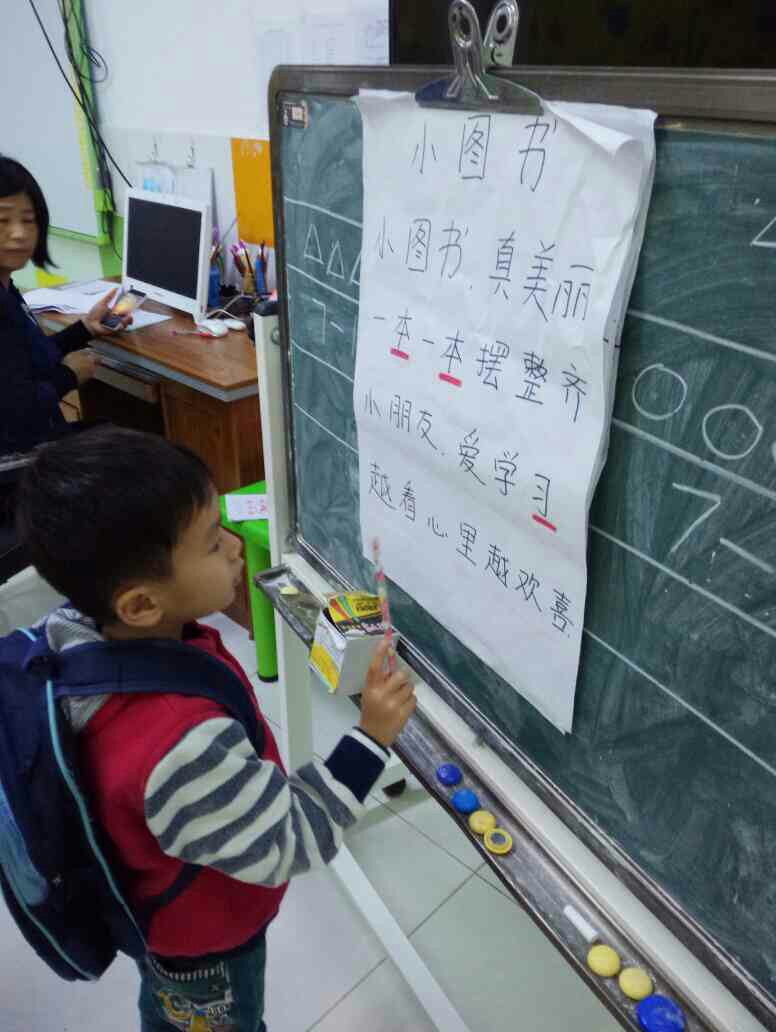 小图书
小图书，真美丽
一本一本摆整齐
小朋友，爱学习
越看心里越欢喜.
7-
7-